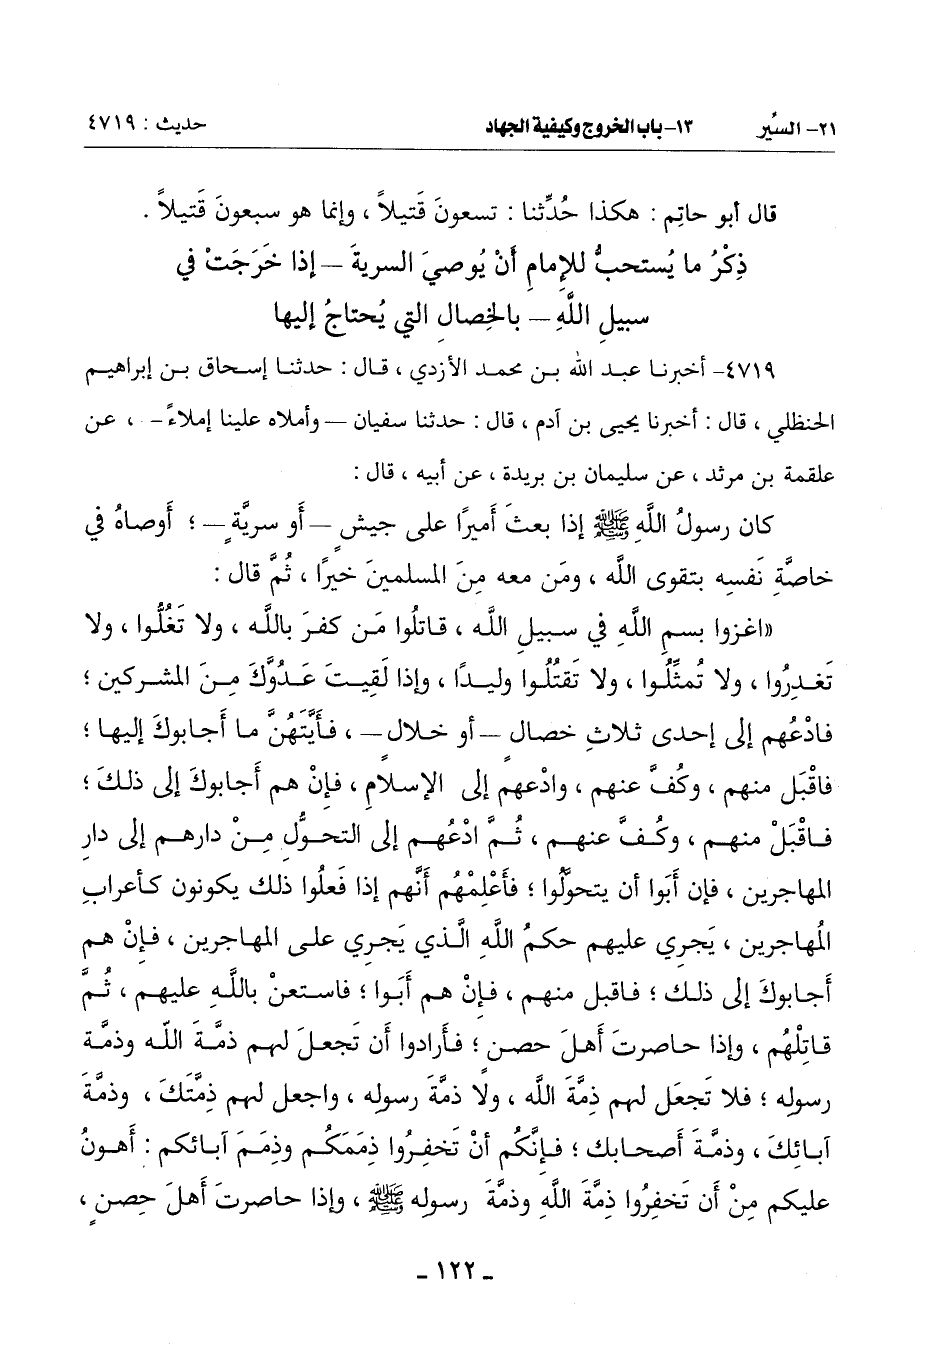 ٢١- السِّير ١٣- باب الخروج وكيفية الجهاد حديث : ٤٧١٩
قال أبو حاتِم : هكذا حُدِّثنا : تسعونَ قَتيلاً ، وإنما هو سبعونَ قَتيلاً .
ذِكْرُ ما يُستحبُّ للإِمامِ أَنْ يُوصيَ السريةَ – إذا خَرَجَتْ في
سبيلِ اللَّهِ – بالخِصالِ التي يُحتاجُ إليها
٤٧١٩- أخبرنـا عبـد الله بـن محمـد الأزدي ، قـال : حدثنـا إسـحاق بـن إبراهيـم
الحنظلي ، قال : أخبرنا يحيى بن آدم ، قال : حدثنا سفيان – وأملاه علينا إملاءً - ، عـن
علقمة بن مرثد ، عن سليمان بن بريدة ، عن أبيه ، قال :
كان رسولُ اللَّهِ ﷺ إذا بعثَ أميرًا على جيشٍ –أو سريَّةٍ– ؛ أَوصاهُ في
خاصَّةِ نَفسِه بتقوى اللَّه ، ومَن معه مِنَ المسلمينَ خيرًا ، ثُمَّ قال :
«اغزوا بسمِ اللَّهِ في سـبيلِ اللَّه ، قـاتلُوا مَـن كفـرَ باللَّـه ، ولا تَغُلُّـوا ، ولا
تَغدِرُوا ، ولا تُمثِّلُوا ، ولا تَقتُلُوا وليـدًا ، وإذا لَقِيـتَ عَـدُوَّكَ مِـنَ المشركين ؛
فادْعُهم إلى إحدى ثلاثِ خصالٍ –أو خلالٍ– ، فـأَيَّتهُنَّ ما أَجابوكَ إليها ؛
فاقْبَل منهم ، وكُفَّ عنهم ، وادْعهم إلى الإسـلامِ ، فـإنْ هـم أَجابوكَ إلى ذلـكَ ؛
فـاقْبَلْ منهـم ، وكُـفَّ عنهـم ، ثُـمَّ ادْعُهـم إلى التحـوُّلِ مِـنْ دارهـم إلى دارِ
المهاجرين ، فإن أَبَوا أن يتحوَّلُوا ؛ فأَعْلِمْهُم أَنَّهم إذا فَعلُوا ذلك يكونون كـأعرابِ
المُهاجرين ، يَجري عليهم حكمُ اللَّهِ الَّـذي يَجري علـى المهاجرين ، فـإنْ هـم
أَجابوكَ إلى ذلـك ؛ فـاقبل منهـم ، فـإنْ هـم أَبَـوا ؛ فاسـتعنْ باللَّـهِ عليهـم ، ثُـمَّ
قاتِلْهُم ، وإذا حـاصرتَ أَهلَ حصنٍ ؛ فـأرادوا أن تَجعلَ لهـم ذمَّـةَ اللَّـه وذمَّـة
رسولِه ؛ فلا تَجعَل لهم ذِمَّةَ اللَّه ، ولا ذمَّةَ رسولِه ، واجعل لهـم ذِمَّتَكَ ، وذمَّةَ
آبـائِكَ ، وذمَّـةَ أَصحـابِك ؛ فـإنَّكُم أنْ تَخفِـرُوا ذِمَمَكُـم وذِمَـمَ آبـائكم : أَهونُ
عليكم مِنْ أن تَخفِرُوا ذِمَّةَ اللَّهِ وذمَّةَ رسولِه ﷺ ، وإذا حـاصرتَ أَهـلَ حِصـنٍ ،
ـ ١٢٢ ـ